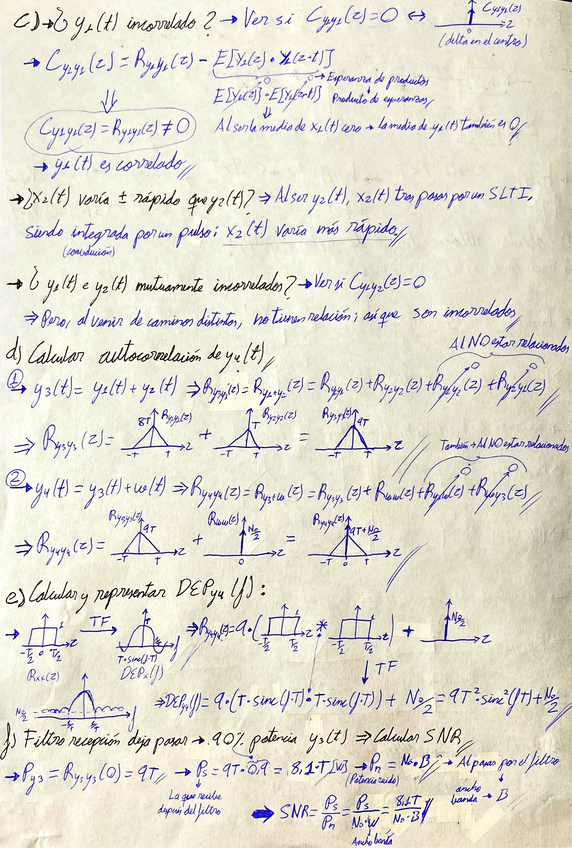 c) → ¿ y₁(t) incorrelado? → Ver si Cy₁y₁(z)=0 ⟺ Cy₁y₁(z)
z
0
(delta en el centro)
→ Cy₁y₁(z) = Ry₁y₁(z) - E[Y₁(z)·Y₁(z-t)]
→ Esperanza de productos
E[Y₁(z)]·E[Y₁(z-t)] Producto de esperanzas
Cy₁y₁(z) = Ry₁y₁(z) ≠ 0
Al ser la media de x₁(t) cero → la media de y₁(t) también es 0
→ y₁(t) es correlado
→ ¿x₂(t) varía ± rápido que y₂(t)? ⇒ Al ser y₂(t), x₂(t) tras pasar por un SLTI,
siendo integrada por un pulso; x₂(t) varía más rápido
(convolución)
→ ¿ y₁(t) e y₂(t) mutuamente incorrelados? → Ver si Cy₁y₂(z)=0
⇒ Pero, al venir de caminos distintos, no tienen relación; así que son incorrelados
Al NO estar relacionados
d) Calcular autocorrelación de y₄(t)
① y₃(t) = y₁(t) + y₂(t) ⇒ Ry₃y₃(z) = Ry₁+y₂(z) = Ry₁y₁(z) + Ry₂y₂(z) + Ry₁y₂(z) + Ry₂y₁(z)
0 0
⇒ Ry₃y₃(z) = 8T Ry₁y₁(z) -T T z + T Ry₂y₂(z) -T T z = Ry₃y₃(z) 9T -T T z
También → Al NO estar relacionados
② y₄(t) = y₃(t) + w(t) ⇒ Ry₄y₄(z) = Ry₃+w(z) = Ry₃y₃(z) + Rww(z) + Ry₃w(z) + Rwy₃(z)
0 0
⇒ Ry₄y₄(z) = Ry₃y₃(z) 9T -T T z + Rww(z) N₀/2 0 z = Ry₄y₄(z) 9T+N₀/2 -T 0 T z
e) Calcular y representar DEPy₄(f):
→ 1 -T/2 0 T/2 z TF → f ⇒ Ry₄y₄(z) = 9·( 1 -T/2 T/2 * 1 -T/2 T/2 ) + N₀/2 z
Rxx(z) T·sinc(f·T) DEPx(f)
↓ TF
N₀/2 -1/T 1/T f
⇒ DEPy₄(f) = 9·(T·sinc(f·T)·T·sinc(f·T)) + N₀/2 = 9T²·sinc²(f·T) + N₀/2
f) Filtro recepción deja pasar → 90% potencia y₃(t) ⇒ Calcular SNR
→ Py₃ = Ry₃y₃(0) = 9T → Ps = 9T·0,9 = 8,1·T [W] → Pn = N₀·B → Al pasar por el filtro
(Potencia ruido)
La que recibe después del filtro
ancho banda → B
⇒ SNR = Ps/Pn = Ps/N₀·W = 8,1T/N₀·B
Ancho banda